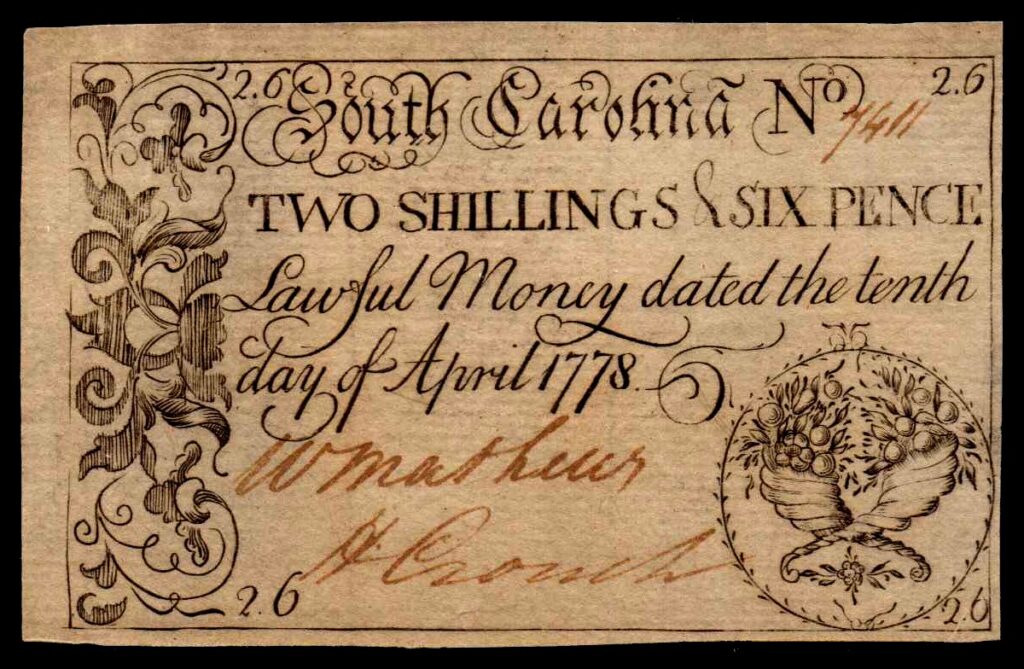 2.6 South Carolina No 7411 2.6
TWO SHILLINGS & SIX PENCE
Lawful Money dated the tenth
day of April 1778.
W Mathews
H Crouch
2.6 2.6